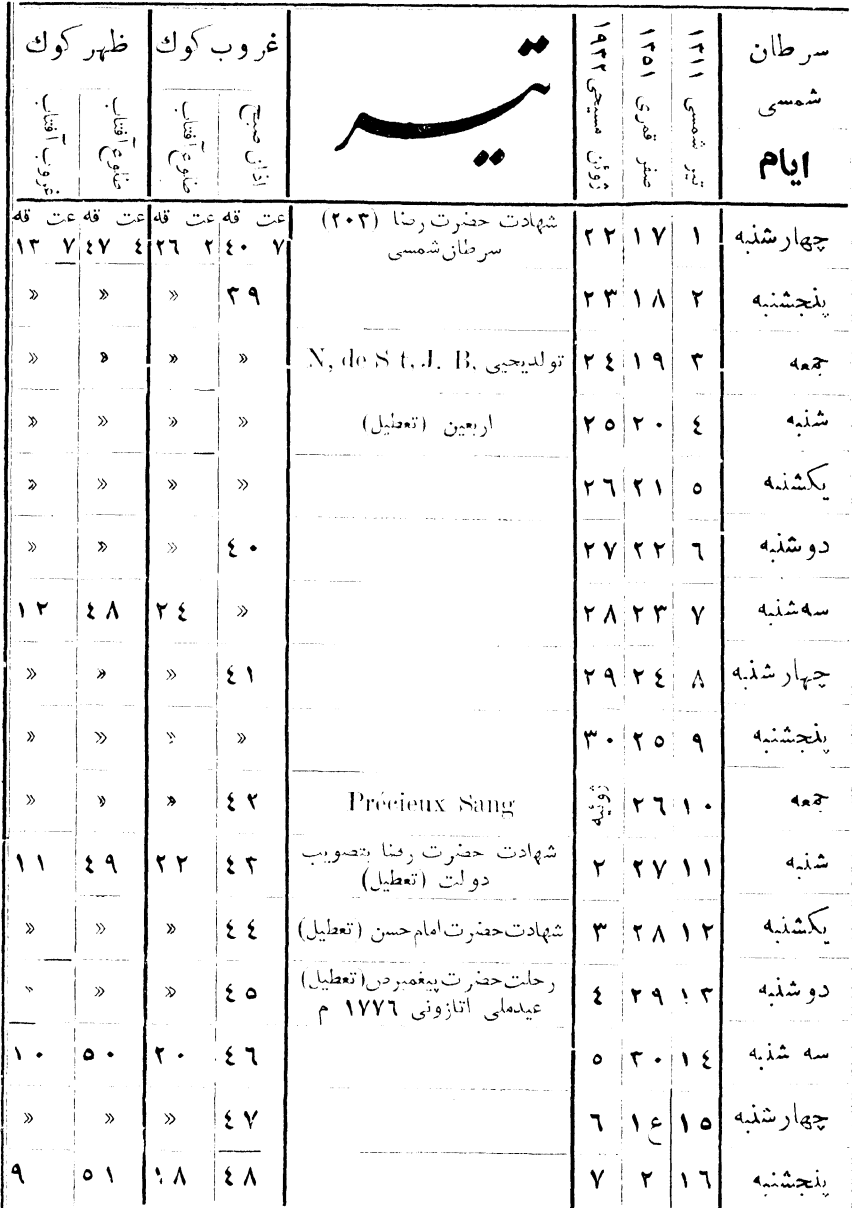 سرطان شمسی ایام | تیر شمسی ۱۳۱۱ | صفر قمری ۱۳۵۱ | ژوئن مسیحی ۱۹۳۲ | تیر | غروب کوك | ظهر کوك
اذان صبح | طلوع آفتاب | طلوع آفتاب | غروب آفتاب
عت قه | عت قه | عت قه | عت قه
چهارشنبه | ۱ | ۱۷ | ۲۲ | شهادت حضرت رضا (۲۰۳) | ۷ ٤۰ | ۲ ۲٦ | ٤ ٤۷ | ۷ ۱۳
سرطان شمسی
پنجشنبه | ۲ | ۱۸ | ۲۳ | ۳۹ | » | » | »
جمعه | ۳ | ۱۹ | ۲٤ | تولدیحیی N, de S t. J. B. | » | » | » | »
شنبه | ٤ | ۲۰ | ۲٥ | اربعین (تعطیل) | » | » | » | »
یکشنبه | ٥ | ۲۱ | ۲٦ | » | » | » | »
دوشنبه | ٦ | ۲۲ | ۲۷ | ٤۰ | » | » | »
سه شنبه | ۷ | ۲۳ | ۲۸ | » | ۲٤ | ٤۸ | ۱۲
چهارشنبه | ۸ | ۲٤ | ۲۹ | ٤۱ | » | » | »
پنجشنبه | ۹ | ۲٥ | ۳۰ | » | » | » | »
جمعه | ۱۰ | ۲٦ | ژوئیه | Précieux Sang | ٤۲ | » | » | »
شنبه | ۱۱ | ۲۷ | ۲ | شهادت حضرت رضا بتصویب | ٤۳ | ۲۲ | ٤۹ | ۱۱
دولت (تعطیل)
یکشنبه | ۱۲ | ۲۸ | ۳ | شهادت حضرت امام حسن (تعطیل) | ٤٤ | » | » | »
دوشنبه | ۱۳ | ۲۹ | ٤ | رحلت حضرت پیغمبر ص (تعطیل) | ٤٥ | » | » | »
عیدملی اتازونی ۱۷۷٦ م
سه شنبه | ۱٤ | ۳۰ | ٥ | ٤٦ | ۲۰ | ٥۰ | ۱۰
چهارشنبه | ۱٥ | ۱ع | ٦ | ٤۷ | » | » | »
پنجشنبه | ۱٦ | ۲ | ۷ | ٤۸ | ۱۸ | ٥۱ | ۹